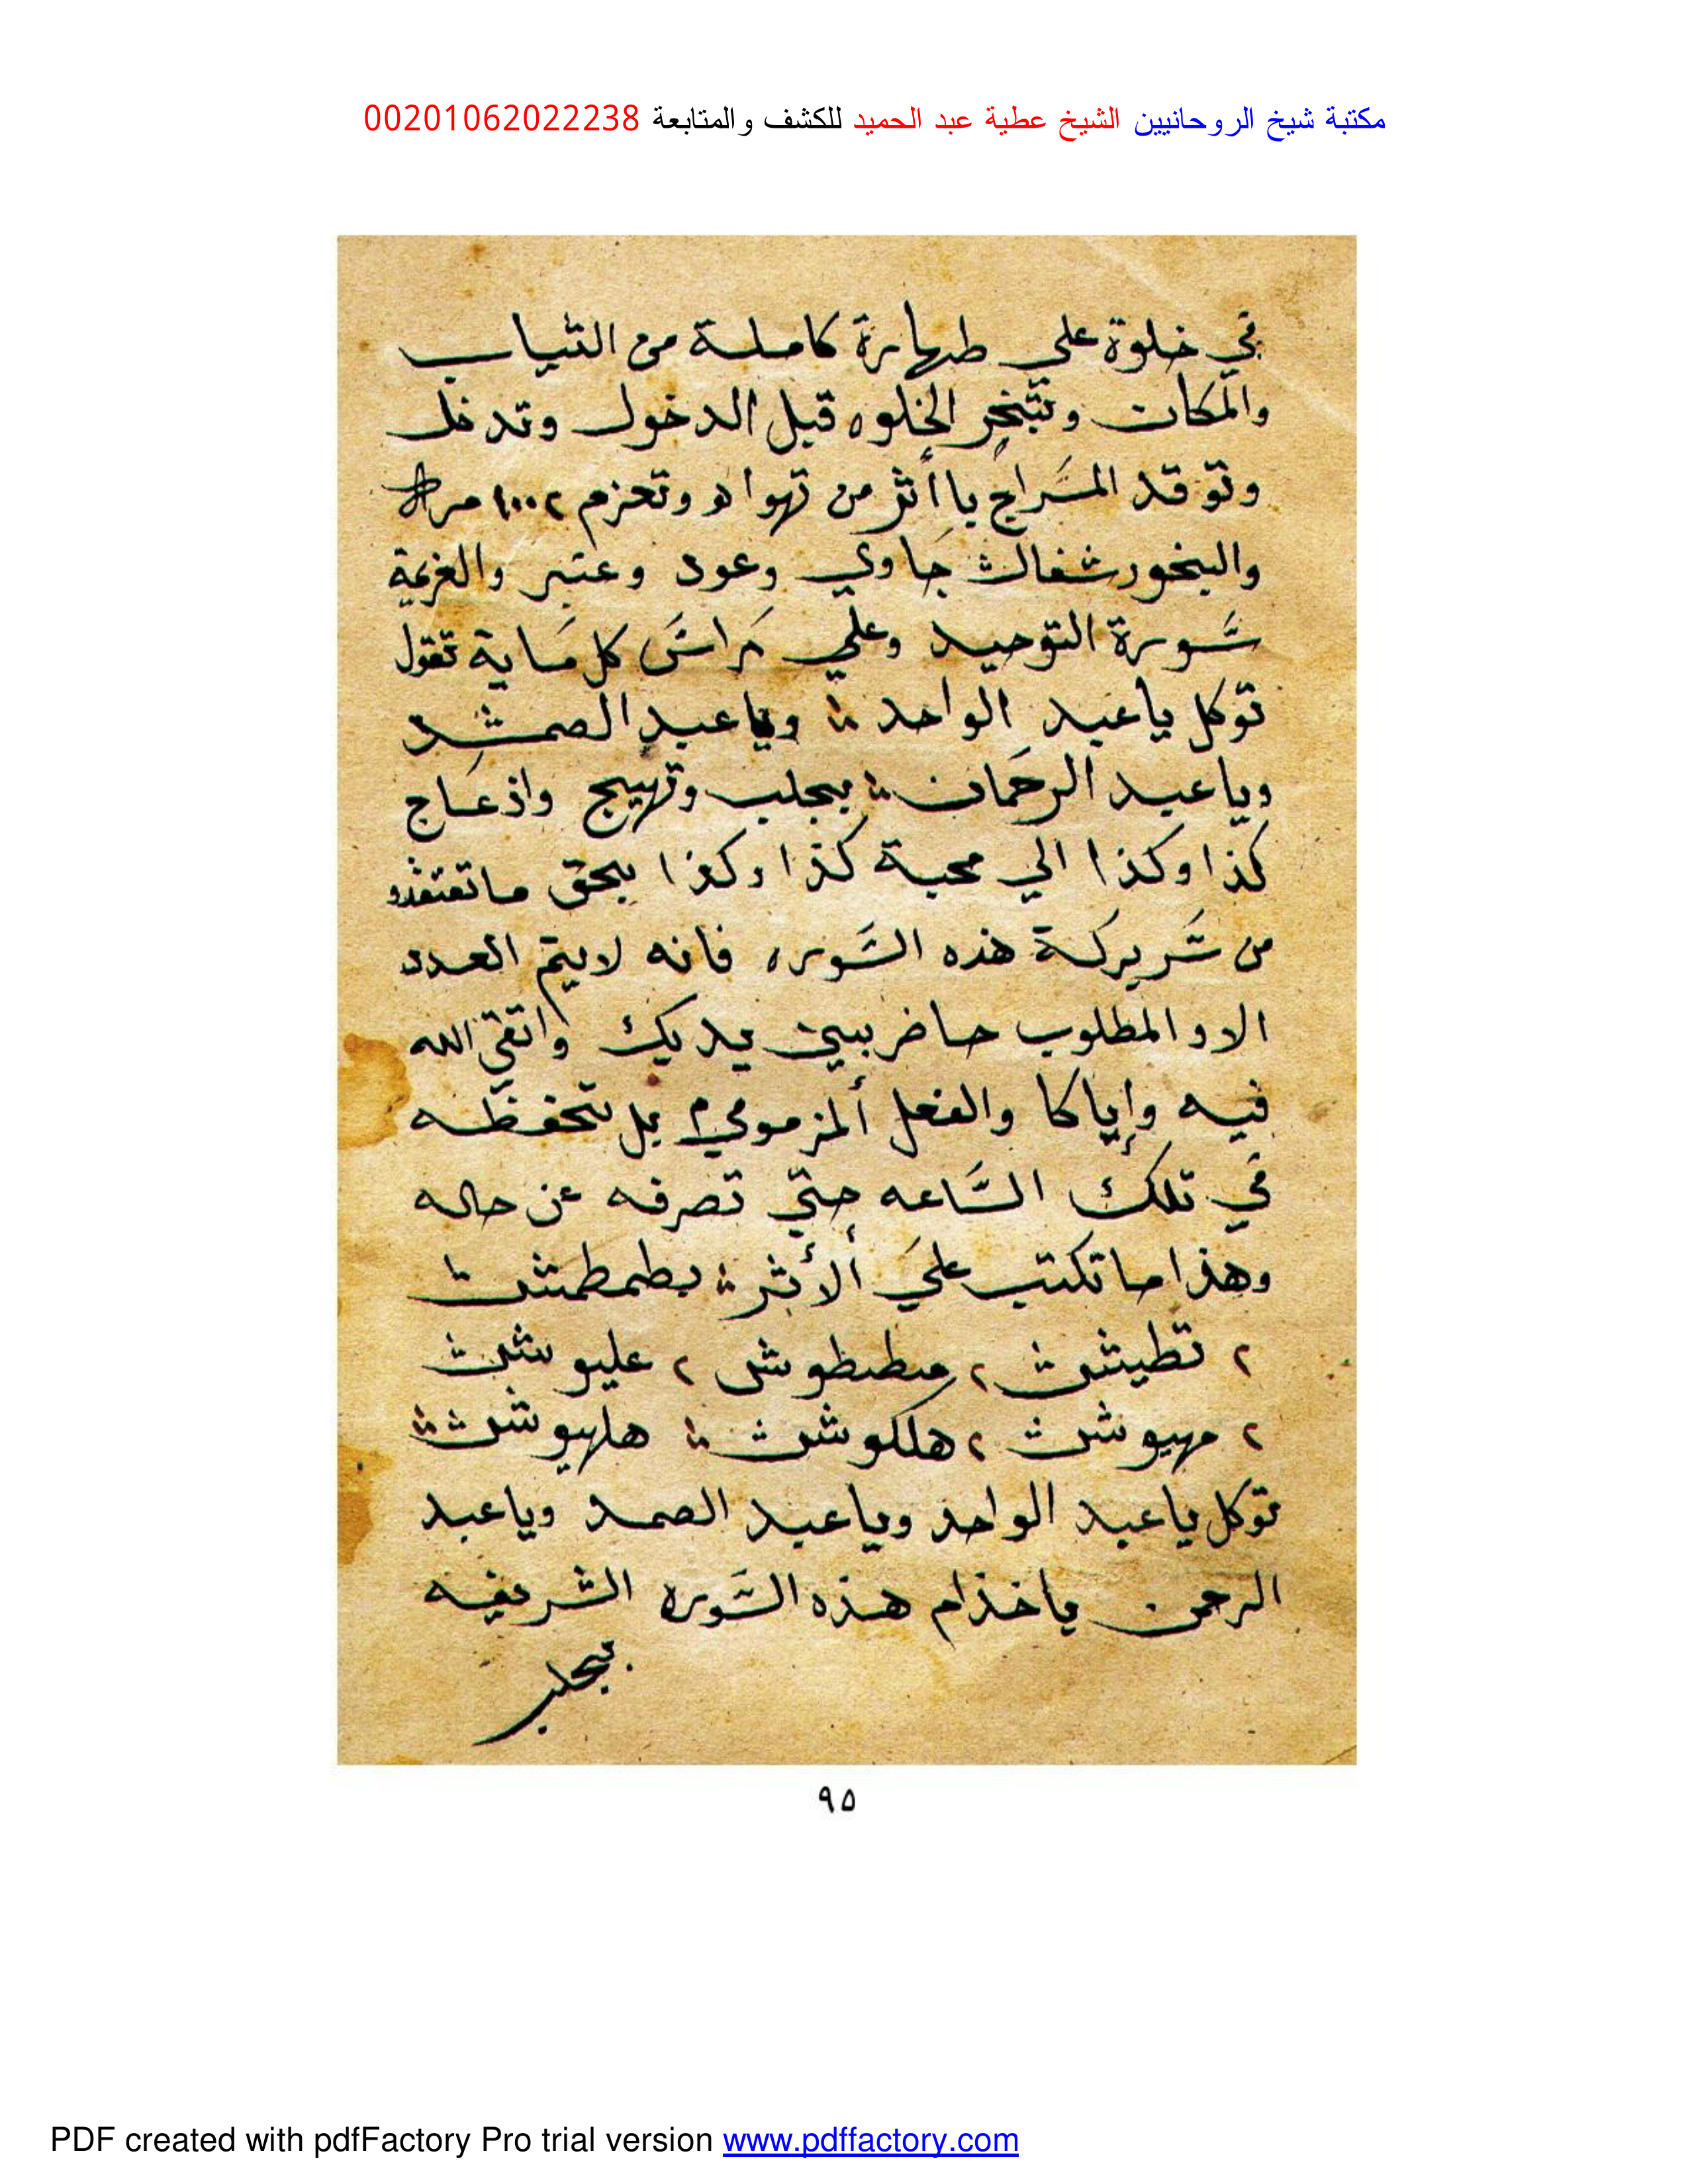 مكتبة شيخ الروحانيين الشيخ عطية عبد الحميد للكشف والمتابعة 00201062022238
في خلوة علي طهارة كاملة من الثياب
والمكان وتبخر الخلوه قبل الدخول وتدخل
وتوقد السراج باأثر من تهواه وتعزم ١٠٠٢ مره
والبخور جاوي وعود وعنبر والعزيمة
سورة التوحيد وعلي راس كل ماية تقول
توكل ياعبد الواحد وياعبد الصمد
وياعبد الرحمان بجلب وتهييج واذعاج
كذا وكذا الي محبة كذا وكذا بحق ماتعتقدو
من سر بركة هذه السوره فانه لايتم العدد
الاو المطلوب حاضر بين يديك واتقي الله
فيه وإياكا والفعل المزموم بل تحفظه
في تلك الساعه حتي تصرفه عن حاله
وهذا ماتكتب علي ألأثر بطمطمش
٢ تطيش ٢ مطبطوش ٢ عليوش
٢ مهيوش ٢ هلكوش هلهيوش
توكل ياعبد الواحد وياعبد الصمد وياعبد
الرحمن ياخدام هذه السوره الشريفه
بجلب
٩٥
PDF created with pdfFactory Pro trial version www.pdffactory.com